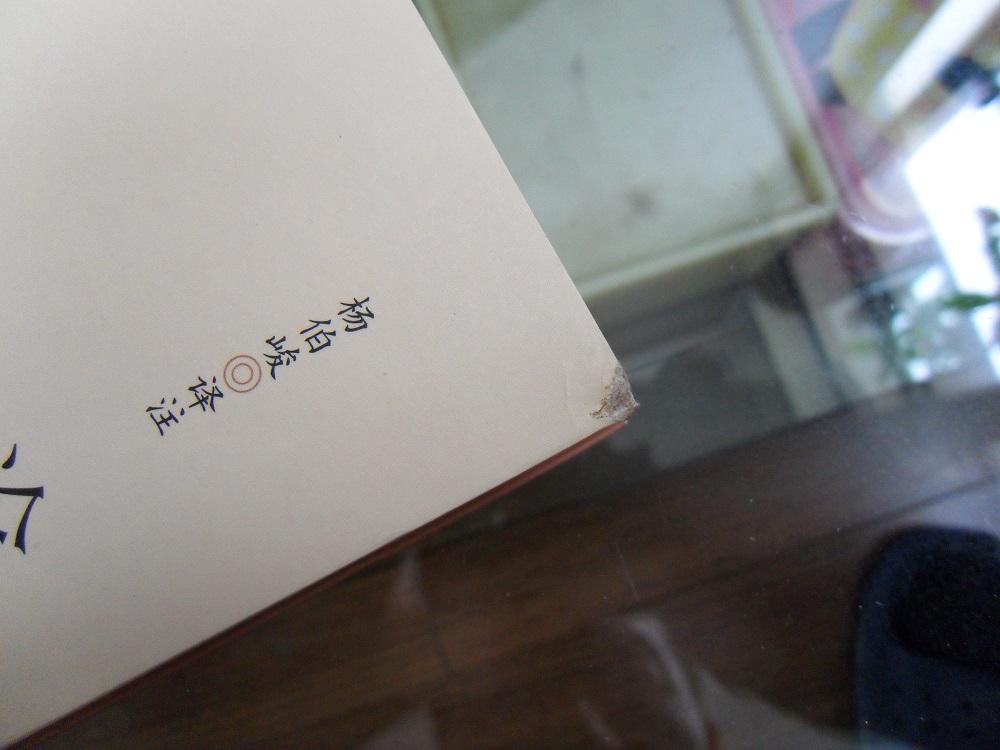 杨伯峻◎译注